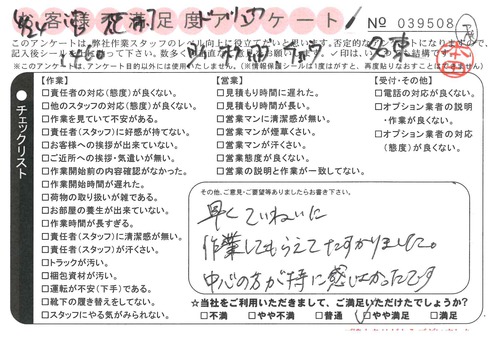 お客様満足度アンケート
No 039508
このアンケートは、弊社作業スタッフのレベル向上に役立てたいと思います。否定的なアンケートになりますので、
※このアンケートは、アンケート目的以外には使用いたしません。(※情報保護シールは1度はがすと、再度貼りなおすことはできません)
チェックリスト
【作業】
□責任者の対応(態度)が良くない。
□他のスタッフの対応(態度)が良くない。
□作業を見ていて不安がある。
□責任者(スタッフ)に好感が持てない。
□お客様への挨拶が出来ていない。
□ご近所への挨拶・気遣いが無い。
□作業開始前の内容確認がなかった。
□作業開始時間が遅れた。
□荷物の取り扱いが雑である。
□お部屋の養生が出来ていない。
□作業時間が長すぎる。
□責任者(スタッフ)に清潔感が無い。
□責任者(スタッフ)が汗くさい。
□トラックが汚い。
□梱包資材が汚い。
□運転が不安(下手)である。
□靴下の履き替えをしてない。
□スタッフにやる気がみられない。
【営業】
□見積もり時間に遅れた。
□見積もり時間が長い。
□営業マンに清潔感が無い。
□営業マンが煙草くさい。
□営業マンが汗くさい。
□営業態度が良くない。
□営業の説明と作業が一致してない。
【受付・その他】
□電話の対応が良くない。
□オプション業者の説明
・作業が良くない。
□オプション業者の対応
(態度)が良くない。
その他、ご意見・ご要望等ありましたらお書き下さい。
早くていねいに
作業してもらえてたすかりました。
中心の方が特に感じよかったです
☆当社をご利用いただきまして、ご満足いただけたでしょうか?
□不満 □やや不満 □普通 □やや満足 □満足